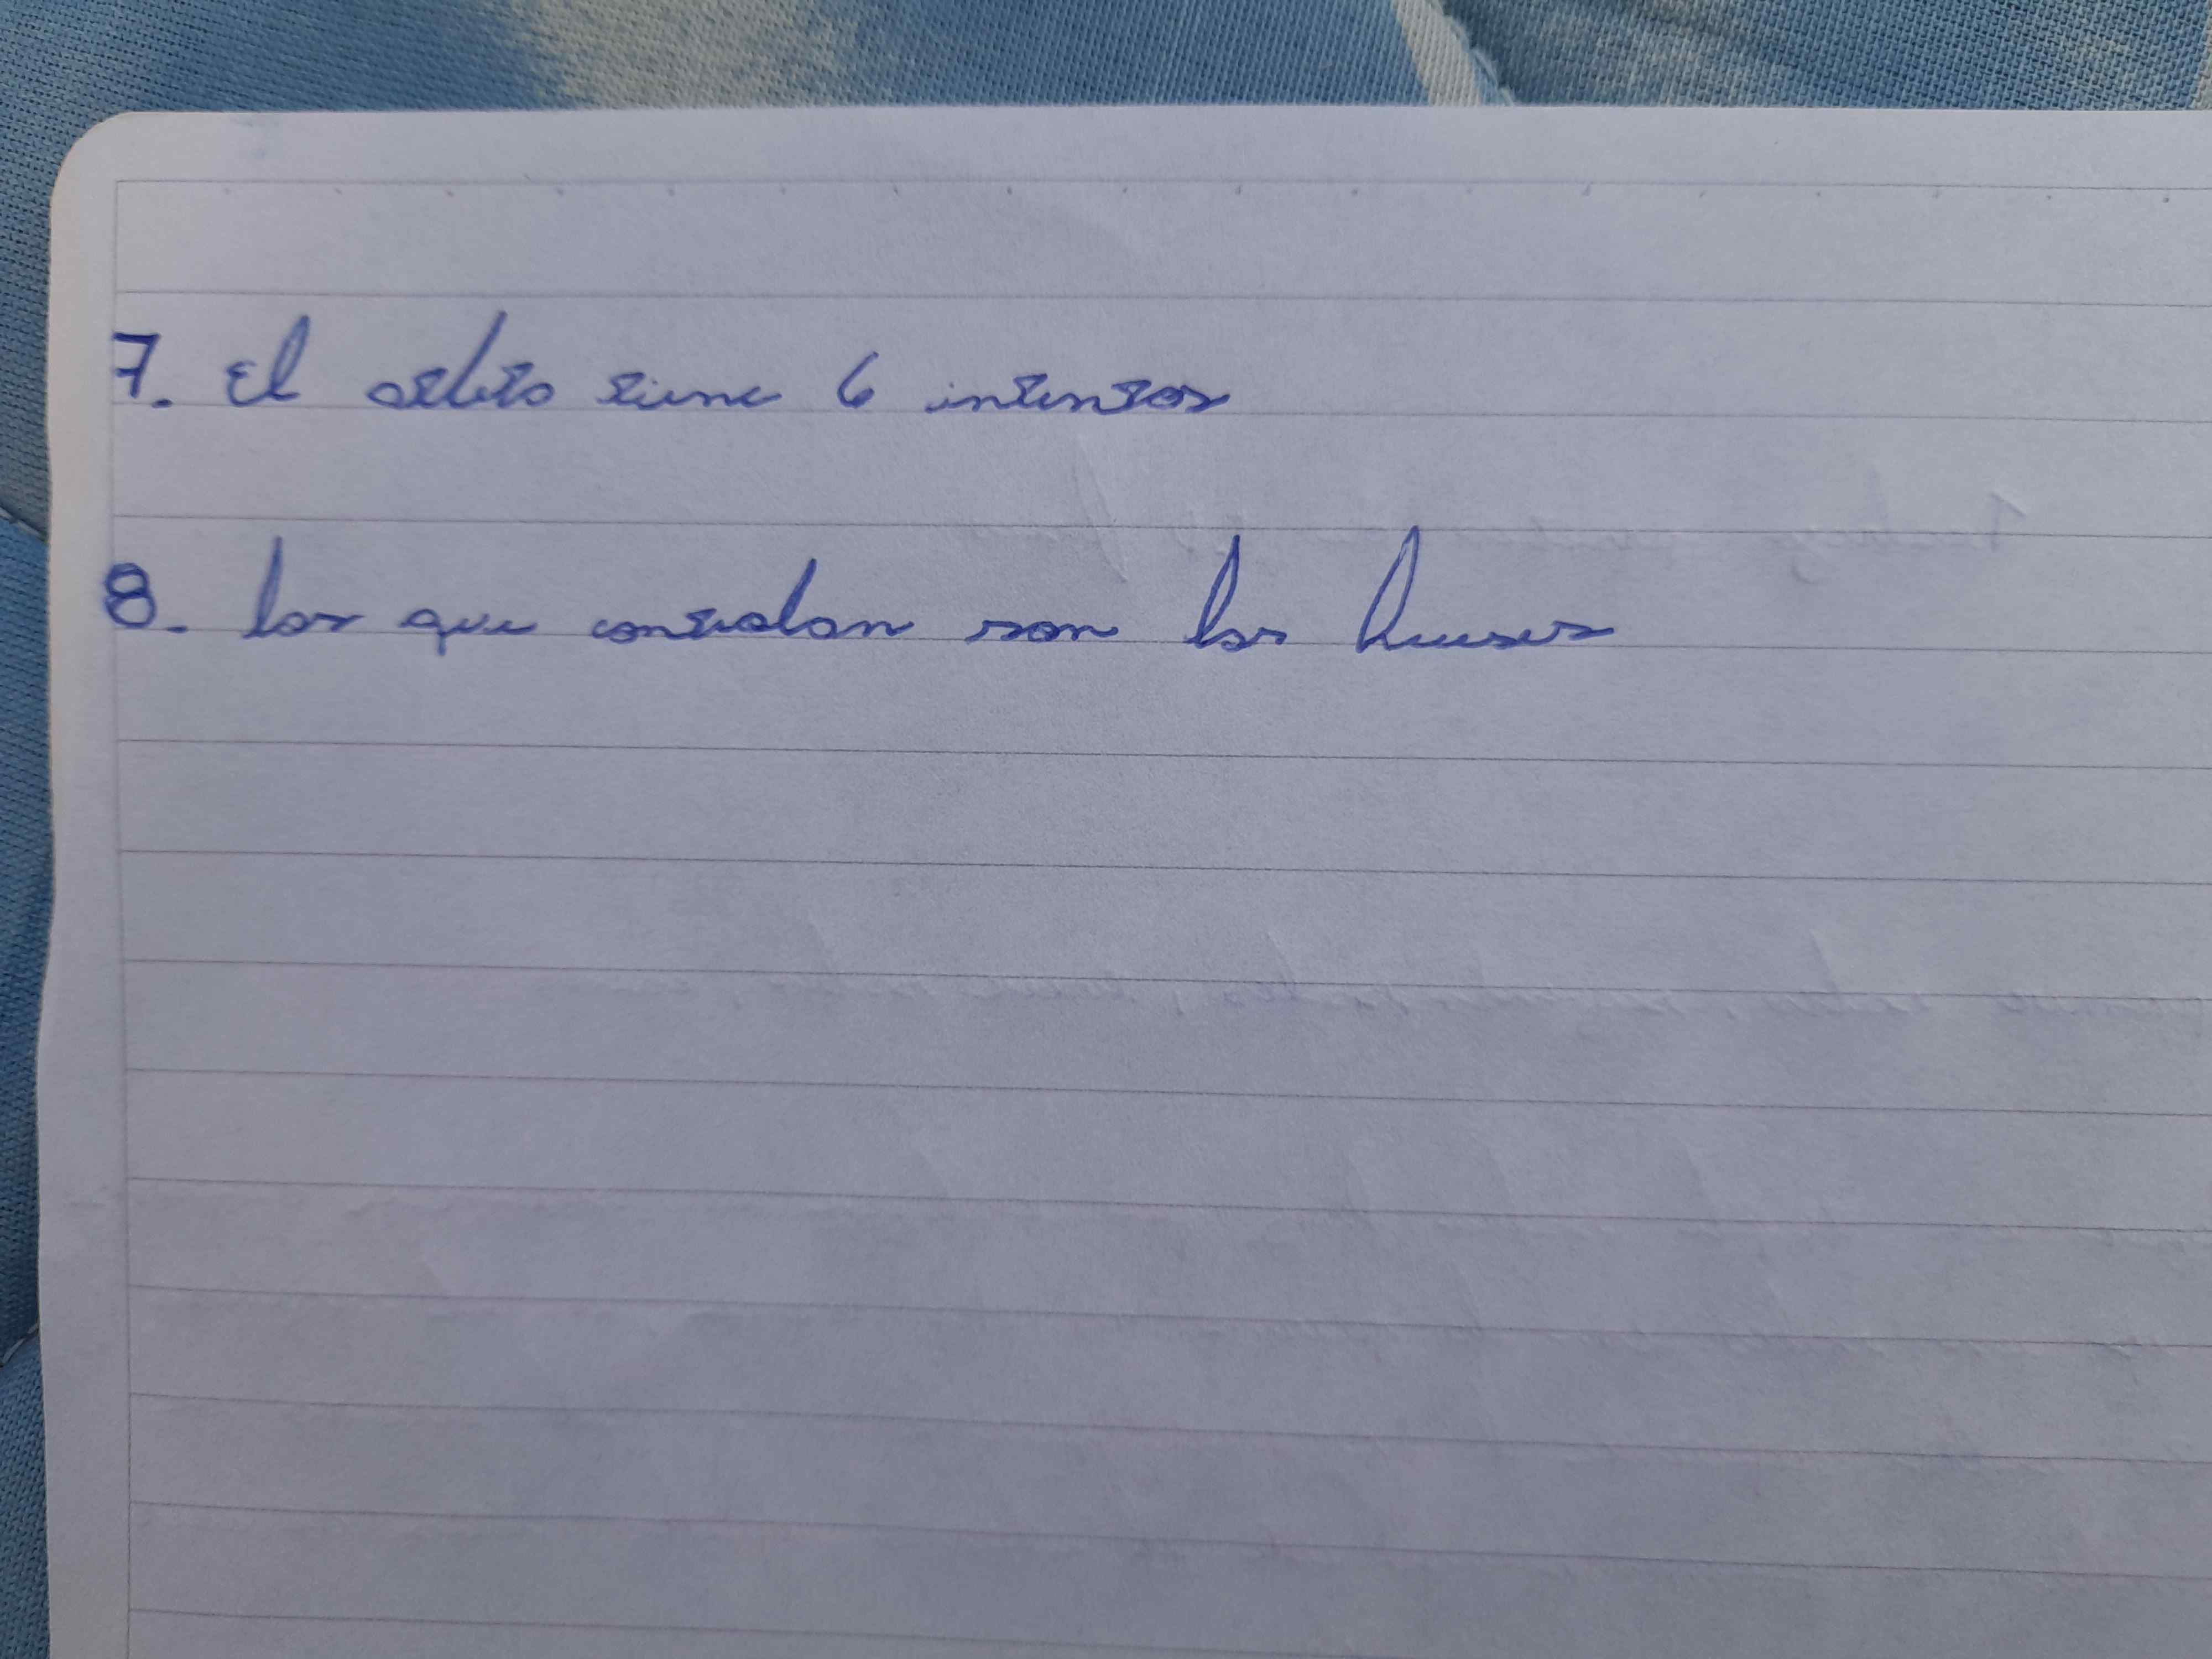 7. El atleta tiene 6 intentos
8. los que controlan son los Jueces